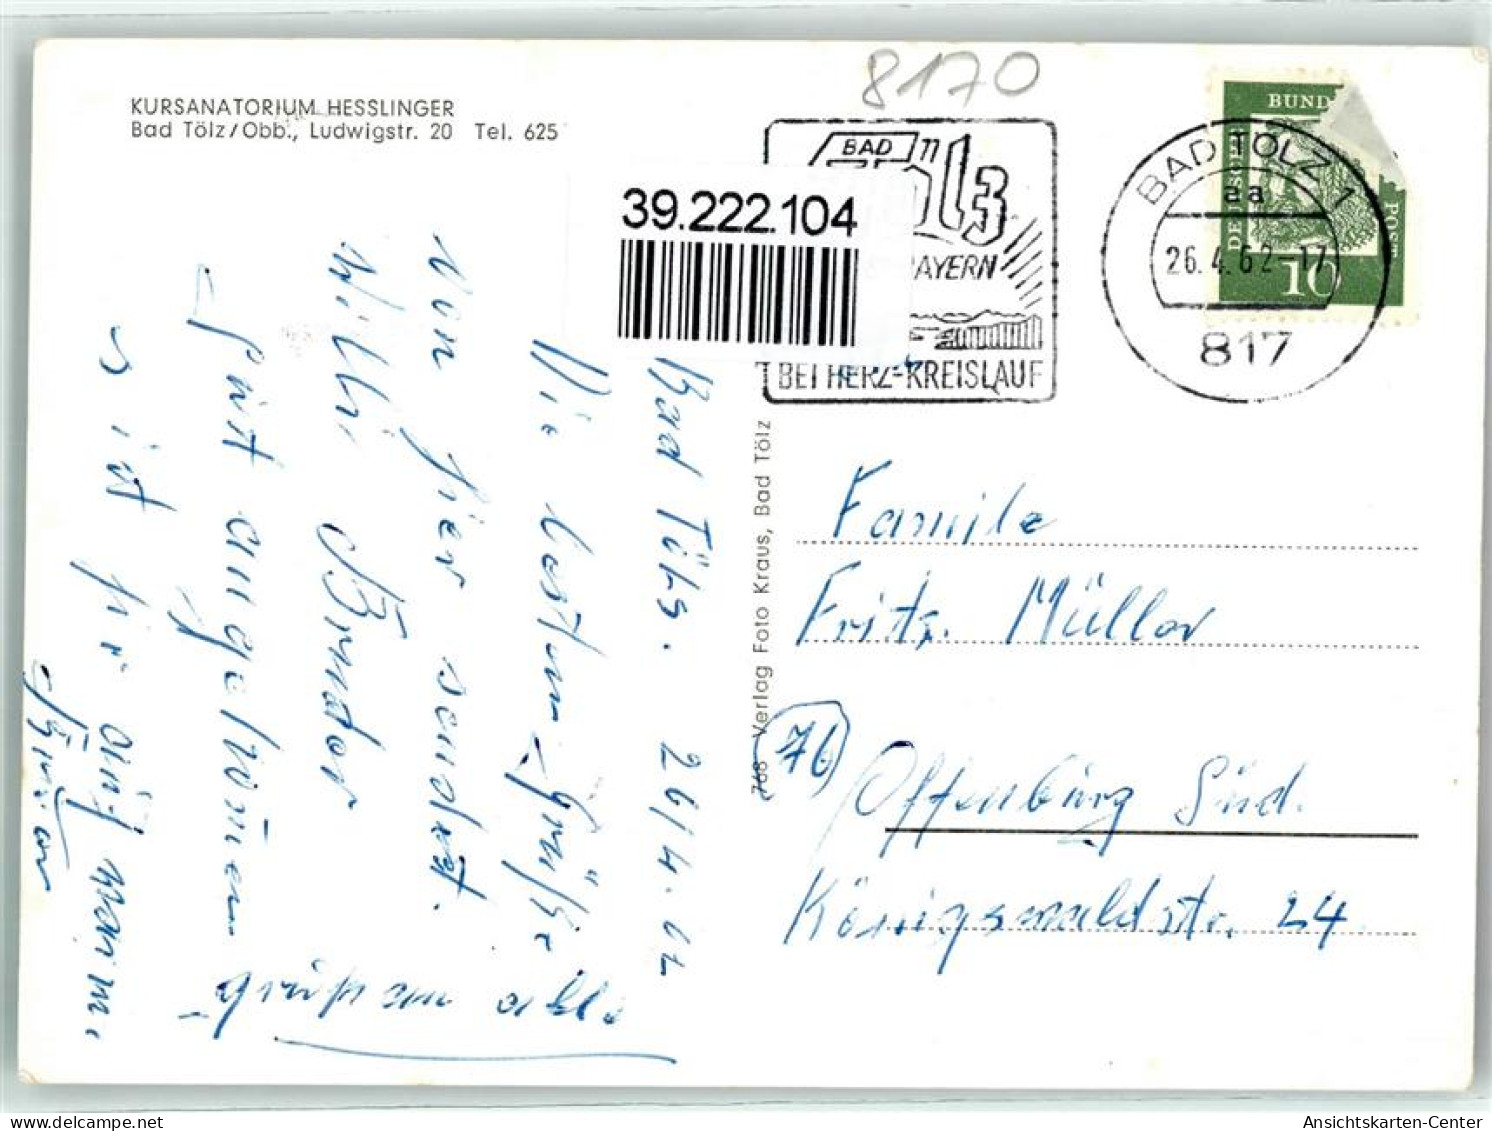 8170
KURSANATORIUM HESSLINGER
Bad Tölz/Obb., Ludwigstr. 20 Tel. 625
39.222.104
BAD
Tölz
BAYERN
BEI HERZ-KREISLAUF
BAD TÖLZ 1
aa
26.4.62-17
817
BUND
DEUTSCHE
POST
10
Bad Tölz. 26/4.62
Die besten Grüße
von hier sendet.
Willi Bruder
Gut angekommen
es ist hier auch warm.
grüß an alle
768 Verlag Foto Kraus, Bad Tölz
Familie
Fritz Müller
76
Offenburg Süd.
Königswaldstr. 24
Ansichtskarten-Center